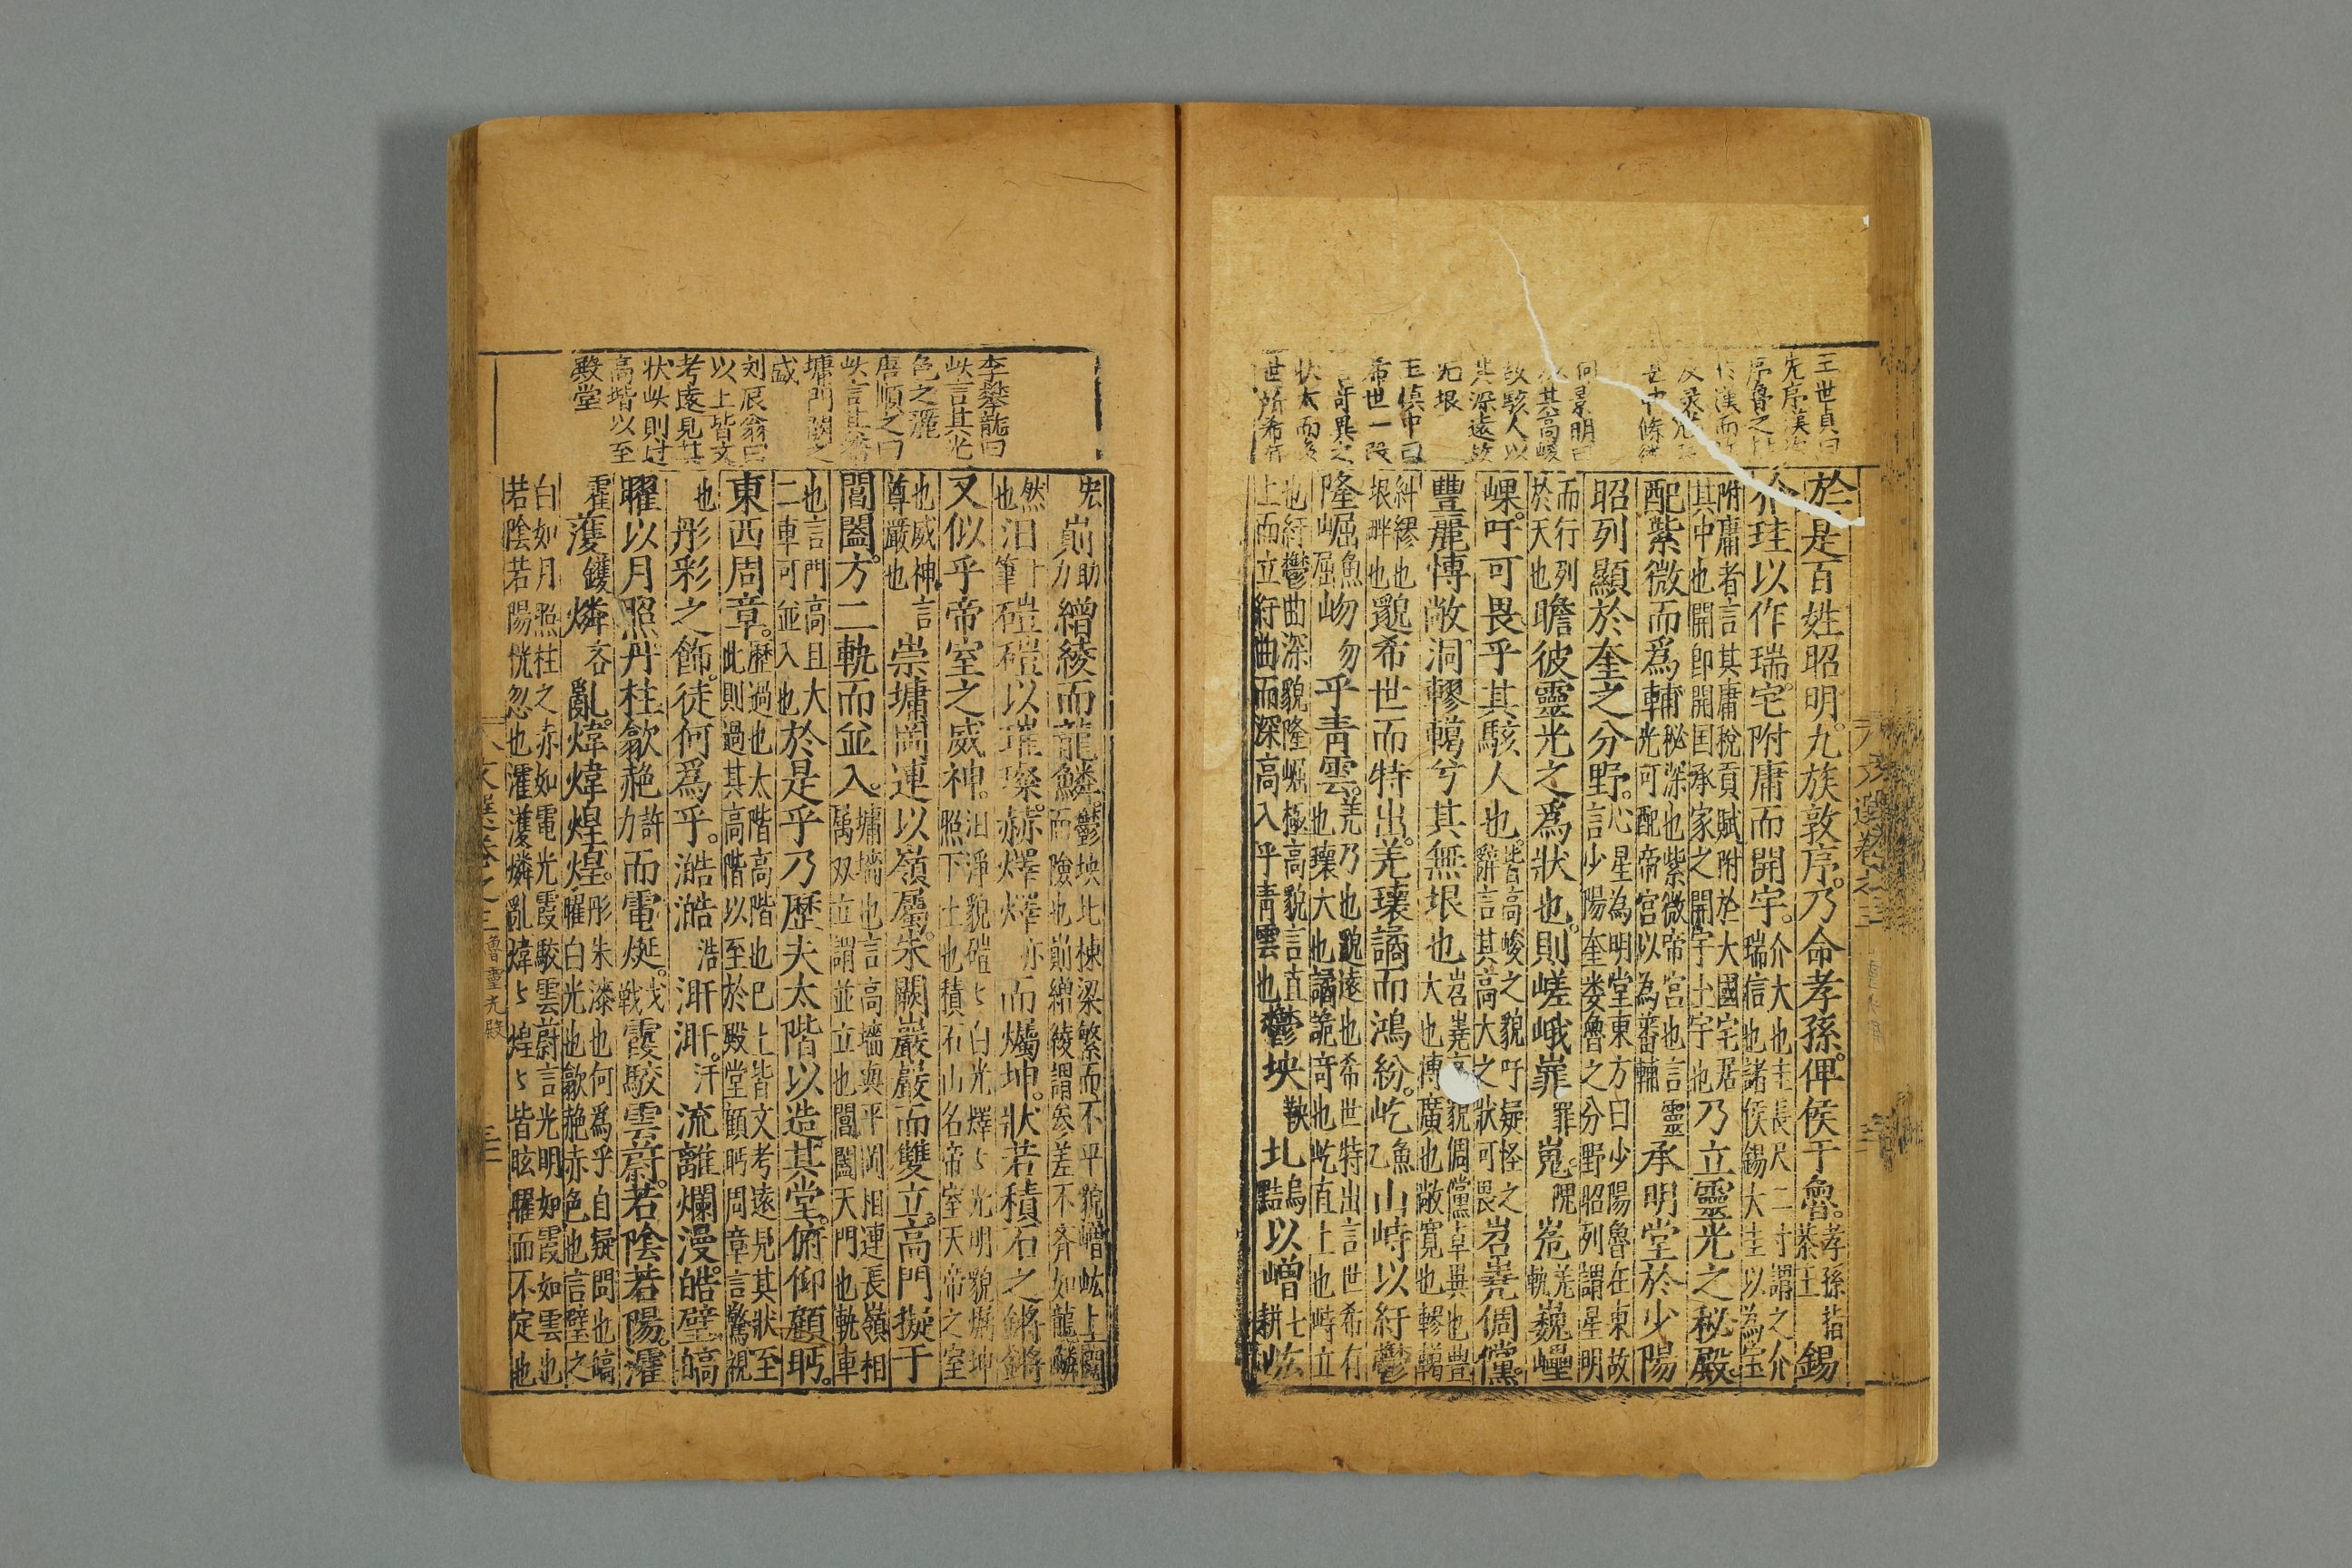 於是百姓昭明。九族敦序。乃命孝孫。俾侯于魯。孝孫指恭王錫
介珪以作瑞。宅附庸而開宇。介大也圭長尺二寸謂之介瑞信也諸侯錫大圭以為宝
附庸者言其庸稅貢賦附於大國宅居其中也開即開国承家之開宇土宇也乃立靈光之秘殿。
配紫微而爲輔秘深也紫微帝宮也言靈光可配帝宮以為藩輔承明堂於少陽
昭列顯於奎之分野。心星為明堂東方曰少陽魯在東故言少陽奎娄魯之分野昭列謂星明
而行列於天也瞻彼靈光之爲狀也。則嵯峨嶵罪嵬。隗峞軌巍㠥
嵲。吁可畏乎其駭人也。皆高峻之貌吁疑怪之辭言其高大之狀可畏岧嶤倜儻。
豐麗博敞洞轇轕兮其無垠也岧嶤高貌倜儻卓異也豊大也博廣也敞寛也轇轕
糾繆也垠畔也邈希世而特出。羌瓌譎而鴻紛。屹魚乙山峙以紆鬱
隆崛魚屈岉勿乎靑雲。羌乃也邈遠也希世特出言世希有也瓌大也譎詭奇也屹直上也峙立
也紆鬱曲深貌隆崛極高貌言直上而立紆曲而深高入乎靑雲也鬱坱鞅圠烏黠以嶒七耕㟅
宏崱助力繒綾而龍鱗鬱坱圠棟梁繁而不平貌嶒㟅上
然也汩筆磑磑以璀璨。赫燡燡亦而爥坤。狀若積石之鏘鏘
又似乎帝室之威神。汩淨貌磑〻白光燡〻光明貌爥坤照下土也積石山名帝室天帝之室
也威神言尊嚴也崇墉岡連以嶺屬。朱闕巖巖而雙立。高門擬于
閶闔。方二軌而並入。墉墻也言高墻與平岡相連長嶺相屬双立謂並立也閶闔天門也軌車
也言門高且大二車可並入也於是乎乃歷夫太階以造其堂。俯仰顧眄。
東西周章。歷過也太階高階也已上皆文考遠見其狀至此則過其高階以至於殿堂顧眄周章言驚視
也彤彩之飾。徒何爲乎。澔澔浩涆涆。汗流離爛漫。皓壁皜
曜以月照丹柱歙赩許力而電烻。戰霞駮雲蔚。若陰若陽。瀖
霍濩鑊燐吝亂。煒煒煌煌。彤朱漆也何爲乎自疑問也皜曜白光也歙赩赤色也言壁之
白如月照柱之赤如電光霞駮雲蔚言光明如霞如雲也若陰若陽恍忽也瀖濩燐亂煒〻煌〻皆眩曜而不定也
王世貞曰
先序漢
序魯之
何景明曰
其高峻
故駭人以
其深遠故
无垠
王慎中曰
希世一段
奇異之
狀大而
世所希有
李攀龍曰
此言其光
色之灑
唐順之曰
此言其
墉門闕之
盛
刘辰翁曰
以上皆文
考遠見其
狀此則过
高堦以至
殿堂
文選卷之三
魯靈光殿